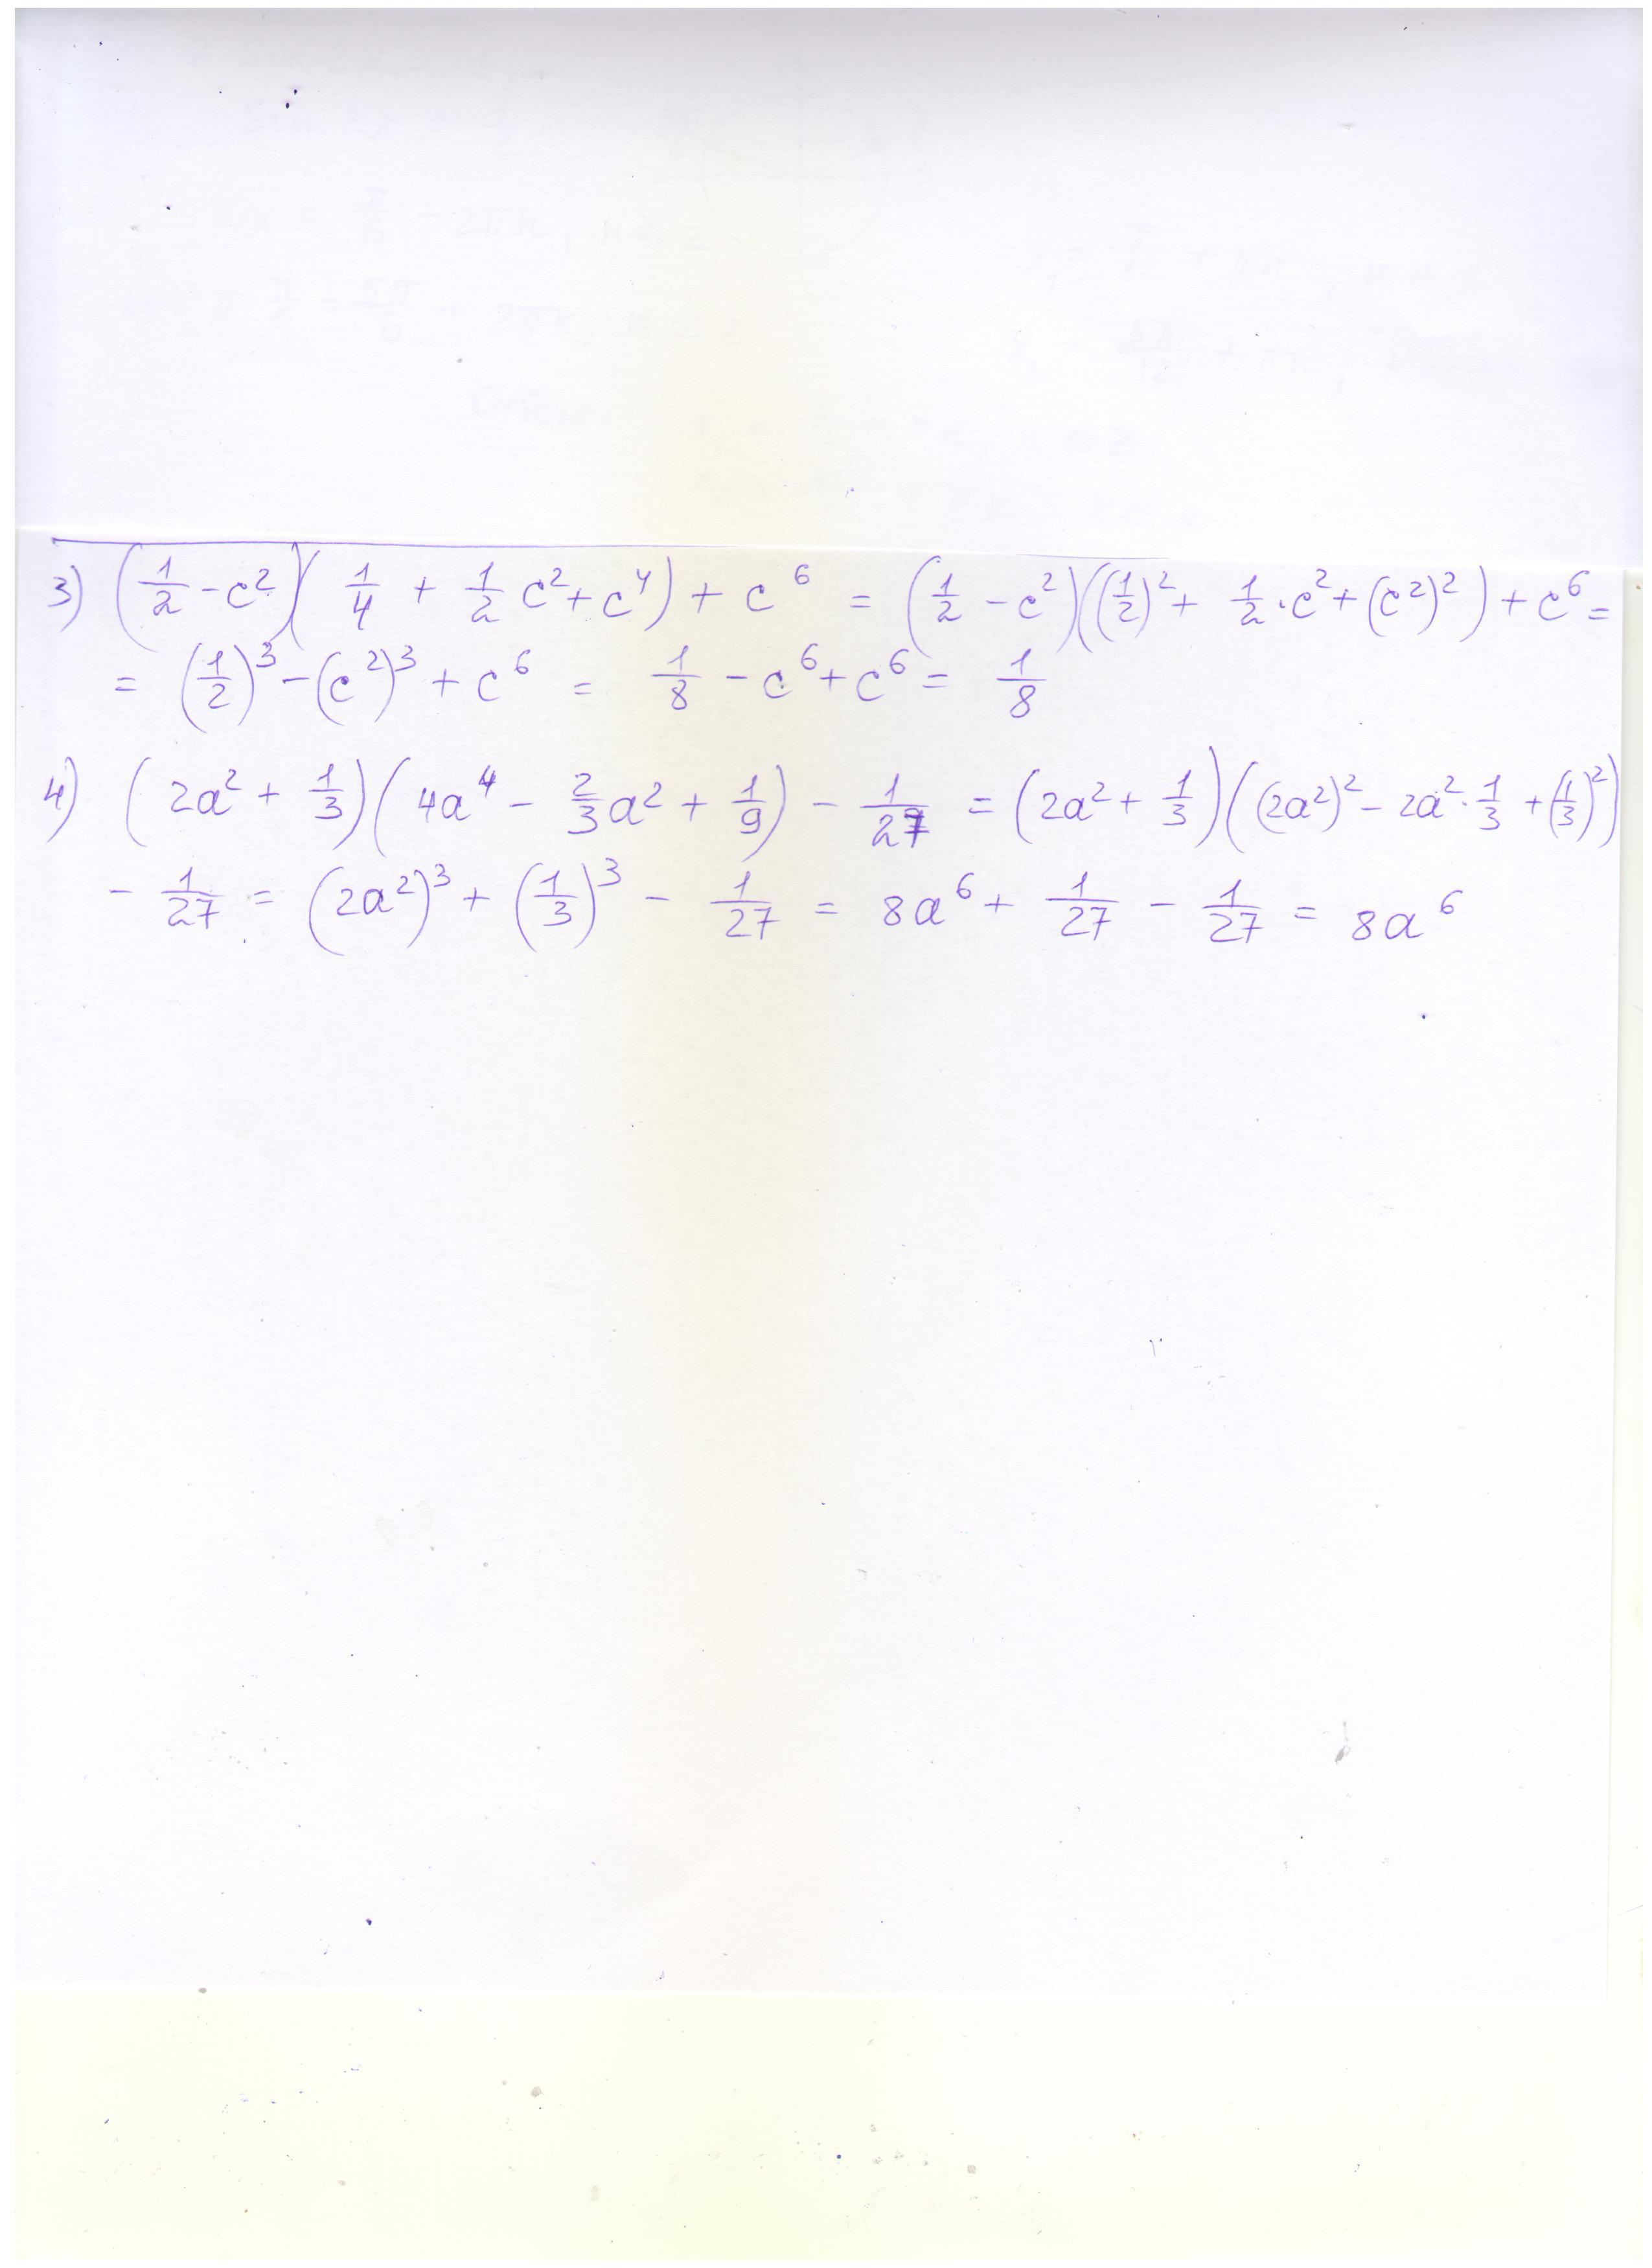 3) (1/2 - c²)(1/4 + 1/2 c² + c⁴) + c⁶ = (1/2 - c²)((1/2)² + 1/2 · c² + (c²)²) + c⁶ =
= (1/2)³ - (c²)³ + c⁶ = 1/8 - c⁶ + c⁶ = 1/8
4) (2a² + 1/3)(4a⁴ - 2/3 a² + 1/9) - 1/27 = (2a² + 1/3)((2a²)² - 2a² · 1/3 + (1/3)²)
- 1/27 = (2a²)³ + (1/3)³ - 1/27 = 8a⁶ + 1/27 - 1/27 = 8a⁶